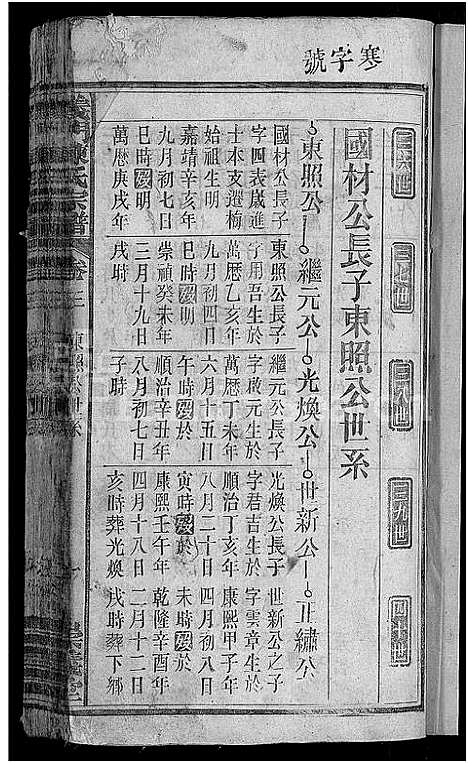 寒字號
三六世
三七世
三八世
三九世
四十世
國材公長子東照公世系
東照公
繼元公
光煥公
世新公
正繡公
國材公長子
字四表歲進
士本支遷楠
始祖生明
嘉靖辛亥年
九月初七日
巳時歿明
萬歷庚戌年
東照公長子
字用吾生於
萬歷乙亥年
九月初四日
巳時歿明
崇禎癸未年
三月十九日
戌時
繼元公長子
字啟元生於
萬歷丁未年
六月十五日
午時歿於
順治辛丑年
八月初七日
子時
光煥公長子
字君吉生於
順治丁亥年
八月二十日
寅時歿於
康熙壬午年
四月十八日
亥時葬光煥
世新公之子
字雲章生於
康熙甲子年
四月初八日
未時歿於
乾隆癸酉年
二月十二日
戌時葬下鄉
陳氏宗譜
卷三
東照公世系